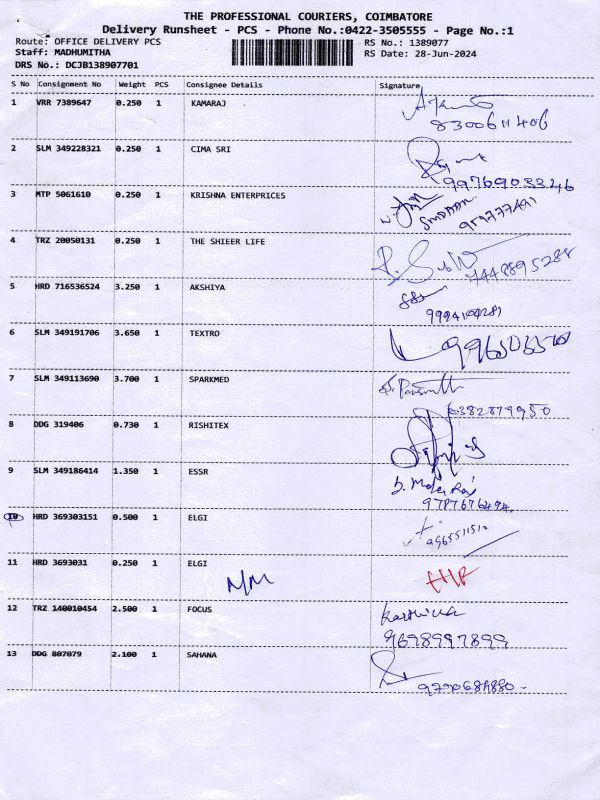 THE PROFESSIONAL COURIERS, COIMBATORE
Delivery Runsheet - PCS - Phone No.:0422-3505555 - Page No.:1
Route: OFFICE DELIVERY PCS
RS No.: 1389077
Staff: MADHUMITHA
RS Date: 28-Jun-2024
DRS No.: DCJB138907701
S No Consignment No Weight PCS Consignee Details Signature
1 VRR 7389647 0.250 1 KAMARAJ
8300611406
2 SLM 349228321 0.250 1 CIMA SRI
9976903346
3 MTP 5061610 0.250 1 KRISHNA ENTERPRICES
4 TRZ 20050131 0.250 1 THE SHIEER LIFE
7448895288
5 HRD 716536524 3.250 1 AKSHIYA
6 SLM 349191706 3.650 1 TEXTRO
7 SLM 349113690 3.700 1 SPARKMED
6382879950
8 DDG 319406 0.730 1 RISHITEX
9 SLM 349186414 1.350 1 ESSR
9787676494
10 HRD 369303151 0.500 1 ELGI
9965511510
11 HRD 3693031 0.250 1 ELGI
N/M
12 TRZ 140010454 2.500 1 FOCUS
Karthika
9698997899
13 DDG 807079 2.100 1 SAHANA